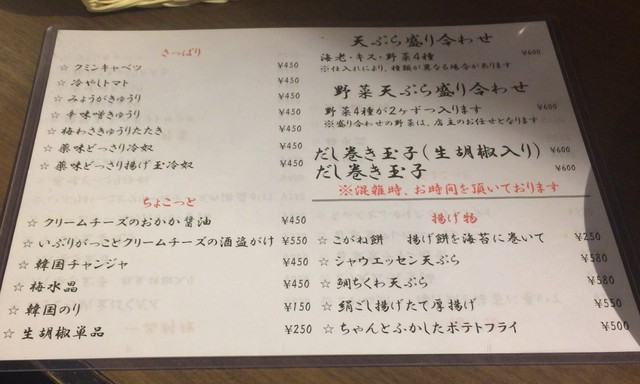 さっぱり
☆ クミンキャベツ ¥450
☆ 冷やしトマト ¥450
☆ みょうがきゅうり ¥450
☆ 辛味噌きゅうり ¥450
☆ 梅わさきゅうりたたき ¥450
☆ 薬味どっさり冷奴 ¥450
☆ 薬味どっさり揚げ玉冷奴 ¥450
ちょこっと
☆ クリームチーズのおかか醤油 ¥450
☆ いぶりがっことクリームチーズの酒盗がけ ¥550
☆ 韓国チャンジャ ¥450
☆ 梅水晶 ¥450
☆ 韓国のり ¥150
☆ 生胡椒単品 ¥250
天ぷら盛り合わせ
海老・キス・野菜4種 ¥600
※仕入れにより、種類が異なる場合があります
野菜天ぷら盛り合わせ
野菜4種が2ヶずつ入ります ¥600
※盛り合わせの野菜は、店主のお任せとなります
だし巻き玉子(生胡椒入り) ¥600
だし巻き玉子 ¥600
※混雑時、お時間を頂いております
揚げ物
☆ こがね餅 揚げ餅を海苔に巻いて ¥250
☆ シャウエッセン天ぷら ¥580
☆ 鯛ちくわ天ぷら ¥580
☆ 絹ごし揚げたて厚揚げ ¥550
☆ ちゃんとふかしたポテトフライ ¥500